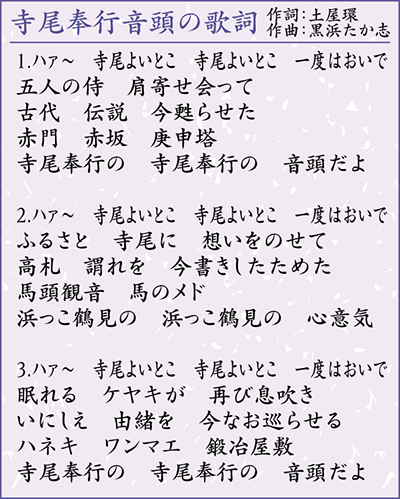 寺尾奉行音頭の歌詞
作詞：土屋環
作曲：黒浜たか志
1.ハァ～　寺尾よいとこ　寺尾よいとこ　一度はおいで
五人の侍　肩寄せ会って
古代　伝説　今甦らせた
赤門　赤坂　庚申塔
寺尾奉行の　寺尾奉行の　音頭だよ
2.ハァ～　寺尾よいとこ　寺尾よいとこ　一度はおいで
ふるさと　寺尾に　想いをのせて
高札　謂れを　今書きしたためた
馬頭観音　馬のメド
浜っこ鶴見の　浜っこ鶴見の　心意気
3.ハァ～　寺尾よいとこ　寺尾よいとこ　一度はおいで
眠れる　ケヤキが　再び息吹き
いにしえ　由緒を　今なお巡らせる
ハネキ　ワンマエ　鍛冶屋敷
寺尾奉行の　寺尾奉行の　音頭だよ